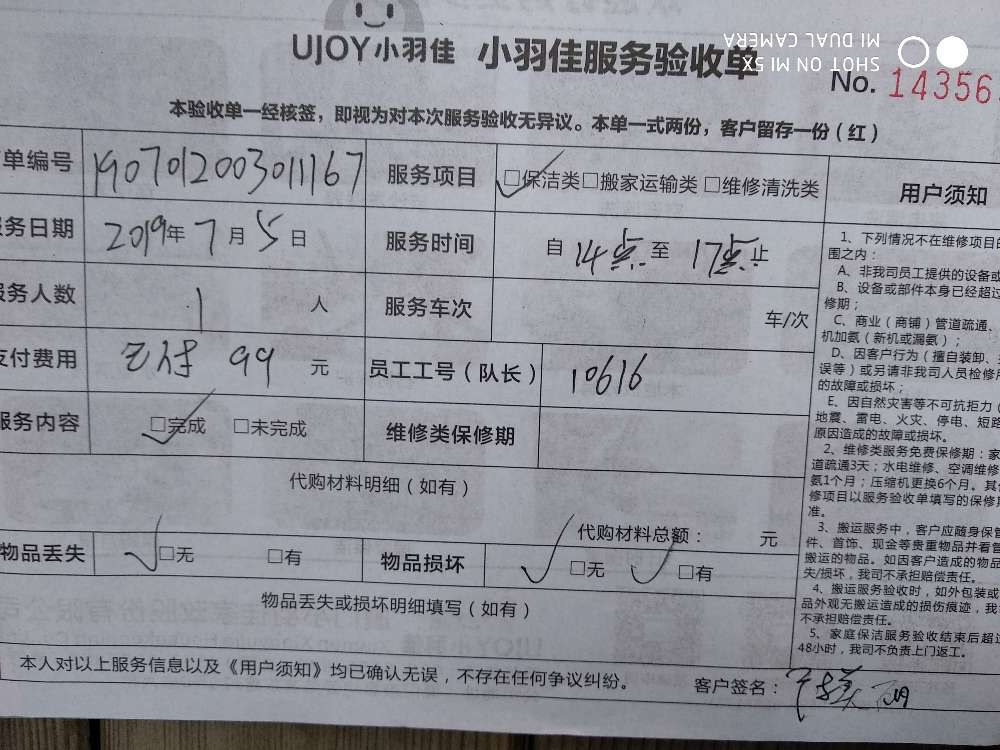 UJOY小羽佳 小羽佳服务验收单
SHOT ON MI 5X
MI DUAL CAMERA
No. 14356
本验收单一经核签，即视为对本次服务验收无异议。本单一式两份，客户留存一份（红）
单编号 190701200301167 服务项目 □保洁类□搬家运输类 □维修清洗类 用户须知
务日期 2019年 7月 5日 服务时间 自 14点 至 17点 止
服务人数 1 人 服务车次 车/次
支付费用 已付 99 元 员工工号（队长） 10616
服务内容 □完成 □未完成 维修类保修期
代购材料明细（如有）
代购材料总额： 元
物品丢失 □无 □有 物品损坏 □无 □有
物品丢失或损坏明细填写（如有）
本人对以上服务信息以及《用户须知》均已确认无误，不存在任何争议纠纷。 客户签名：
1、下列情况不在维修项目的
围之内：
A、非我司员工提供的设备或
B、设备或部件本身已经超过
修期；
C、商业（商铺）管道疏通、
机加氨（新机或漏氨）；
D、因客户行为（擅自装卸、
误等）或另请非我司人员检修
的故障或损坏；
E、因自然灾害等不可抗拒力（
地震、雷电、火灾、停电、短路
原因造成的故障或损坏。
2、维修类服务免费保修期：家
道疏通3天；水电维修、空调维修
氨1个月；压缩机更换6个月。其
修项目以服务验收单填写的保修期
准。
3、搬运服务中，客户应随身保管
件、首饰、现金等贵重物品并看管
搬运的物品。如因客户造成的物品
失/损坏，我司不承担赔偿责任。
4、搬运服务验收时，如外包装或
品外观无搬运造成的损伤痕迹，我
不承担赔偿责任。
5、家庭保洁服务验收结束后超过
48小时，我司不负责上门返工。